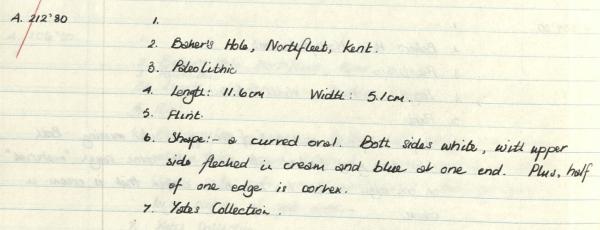 A. 212'80
1.
2. Baker's Hole, Northfleet, Kent.
3. Paleolithic
4. Length: 11.6cm Width: 5.1cm.
5. Flint.
6. Shape:- a curved oval. Both sides white, with upper
side flecked in cream and blue at one end. Plus, half
of one edge is cortex.
7. Yates Collection.